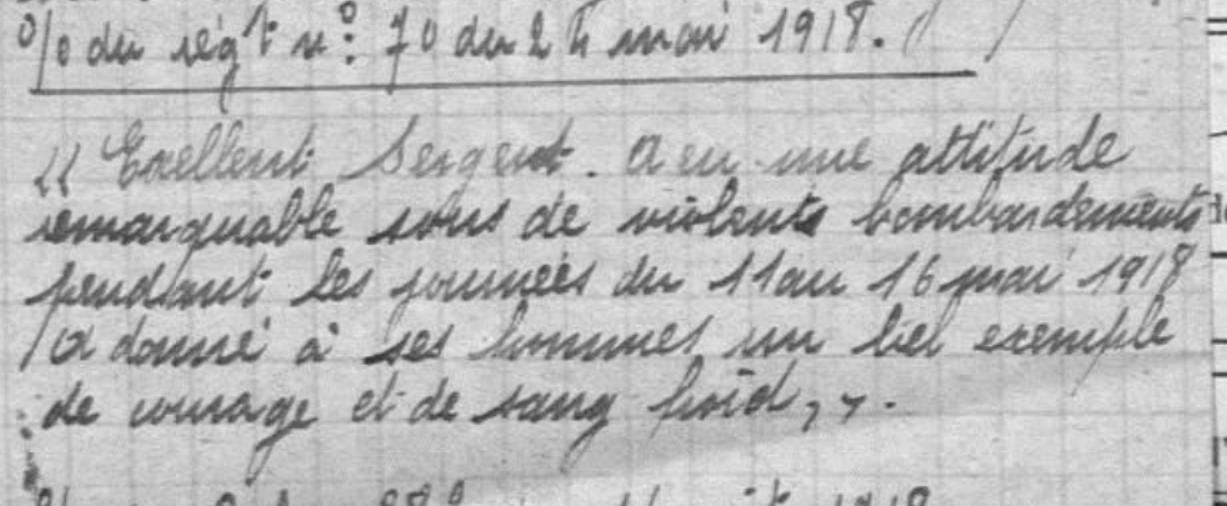 O/o du régt n° 70 du 24 mai 1918.
"Exellent Sergent. A eu une attitude
remarquable sous de violents bombardements
pendant les journées du 11 au 16 mai 1918
A donné à ses hommes un bel exemple
de courage et de sang froid,,.